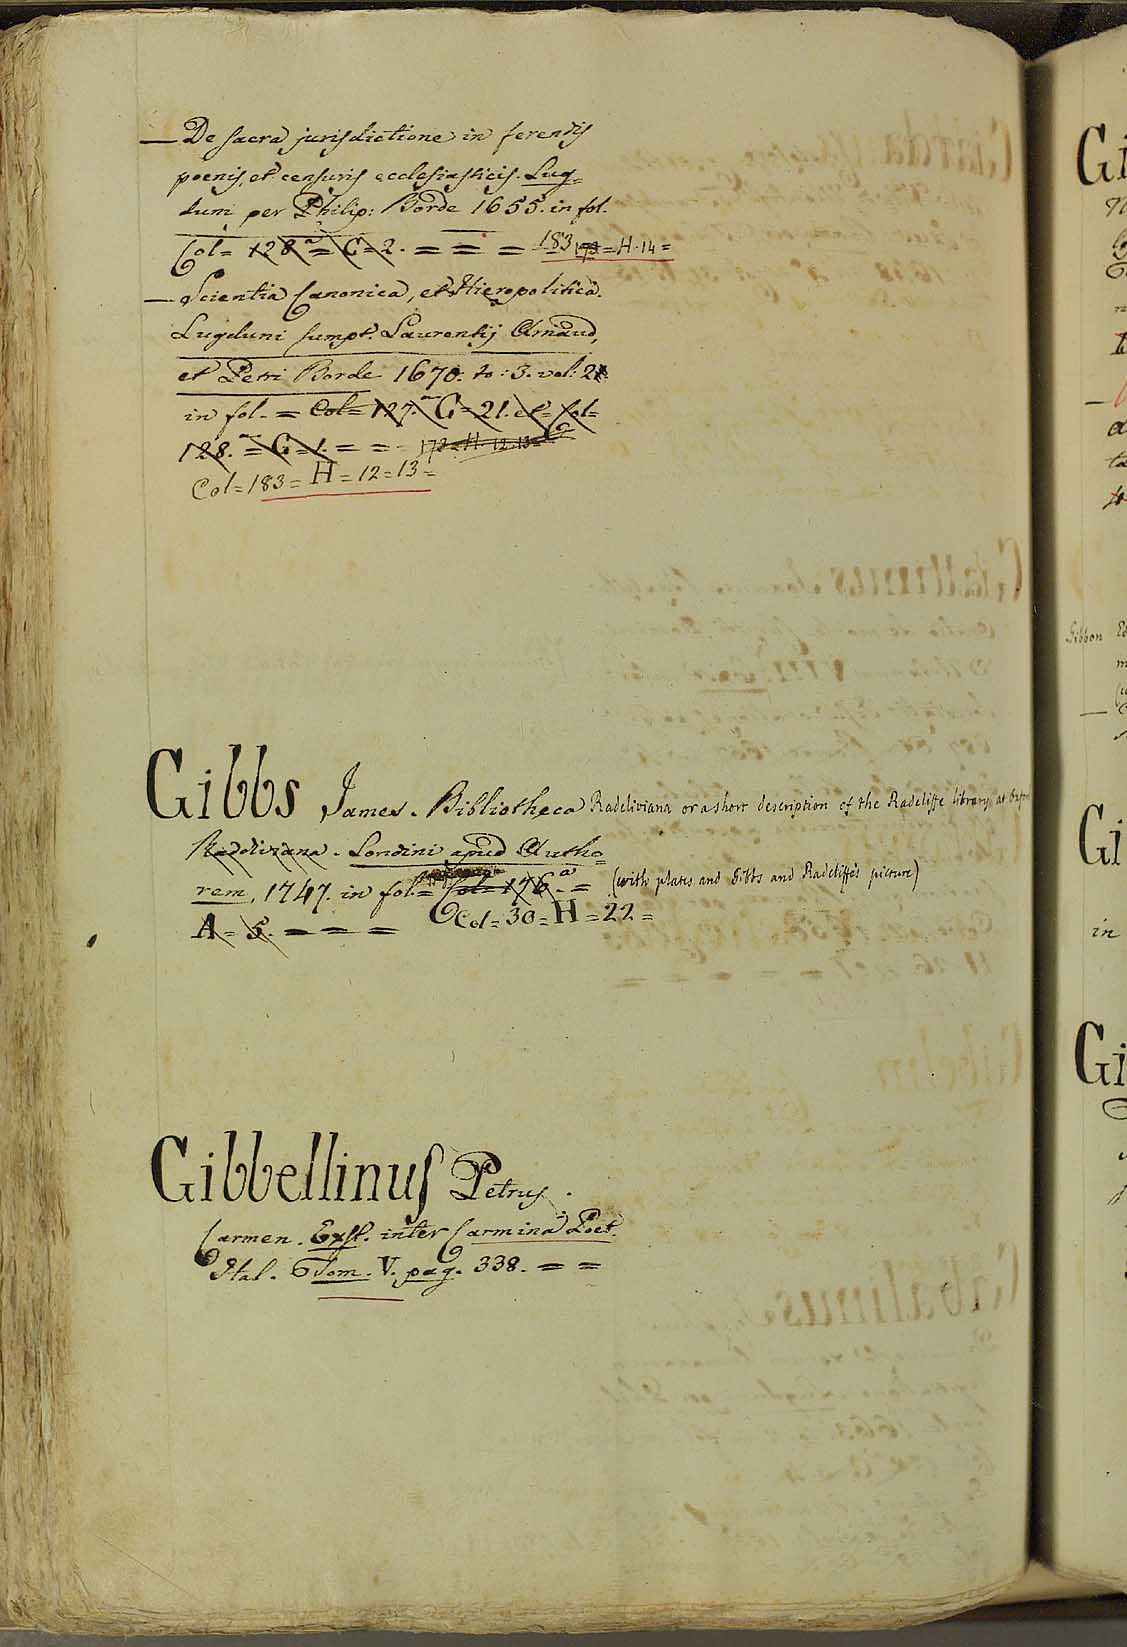 — De sacra jurisdictione in ferendis
poenis, et censuris ecclesiasticis. Lug=
duni per Philip: Borde 1655. in fol.
Col= 128.ᵃ= G=2. = = = 183 172 = H. 14 =
— Scientia Canonica, et Hieropolitica.
Lugduni sumpt. Laurentij Arnaud,
et Petri Borde 1670. to: 3. vol: 2
in fol. = Col= 127.ᵃ G=21. et= Col=
128.ᵃ = G=1. = = = 172=H=12=13=
Col=183= H=12=13=
Gibbs James. Bibliotheca Radcliviana or a short description of the Radcliffe library, at
Radcliviana. Londini apud Autho=
rem. 1747. in fol.= Col=176.ᵃ = (with plates and Gibbs and Radcliffe's picture)
A= 5. = = = Col=30=H=22=
Gibbellinus Petrus.
Carmen. Exst. inter Carmina Poet.
Ital. Tom. V. pag. 338. = =
Gi
Gibbon
Gi
in
Gi